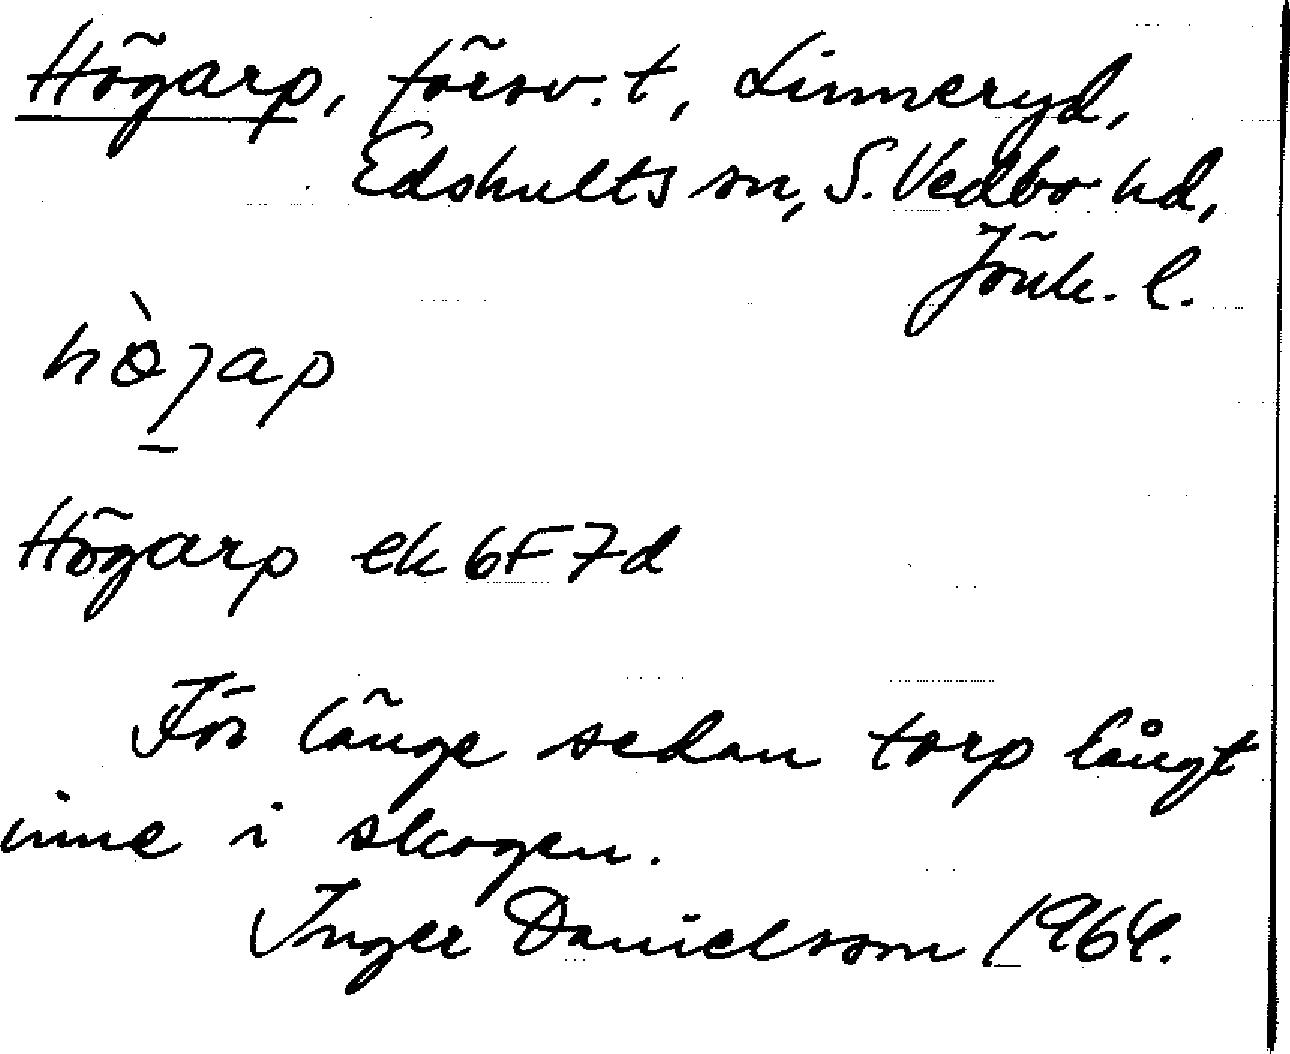 Högarp, försv. t, Linneryd,
Edshults sn, S. Vedbo hd,
Jönk. l.
hò̱jap
Högarp ek 6F7d
För länge sedan torp långt
inne i skogen.
Inger Danielsson 1964.